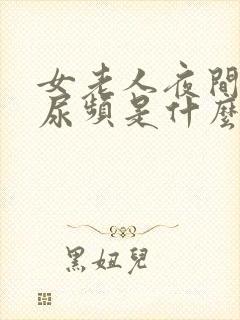 女老人夜間
尿頻是什麼
黑妞兒